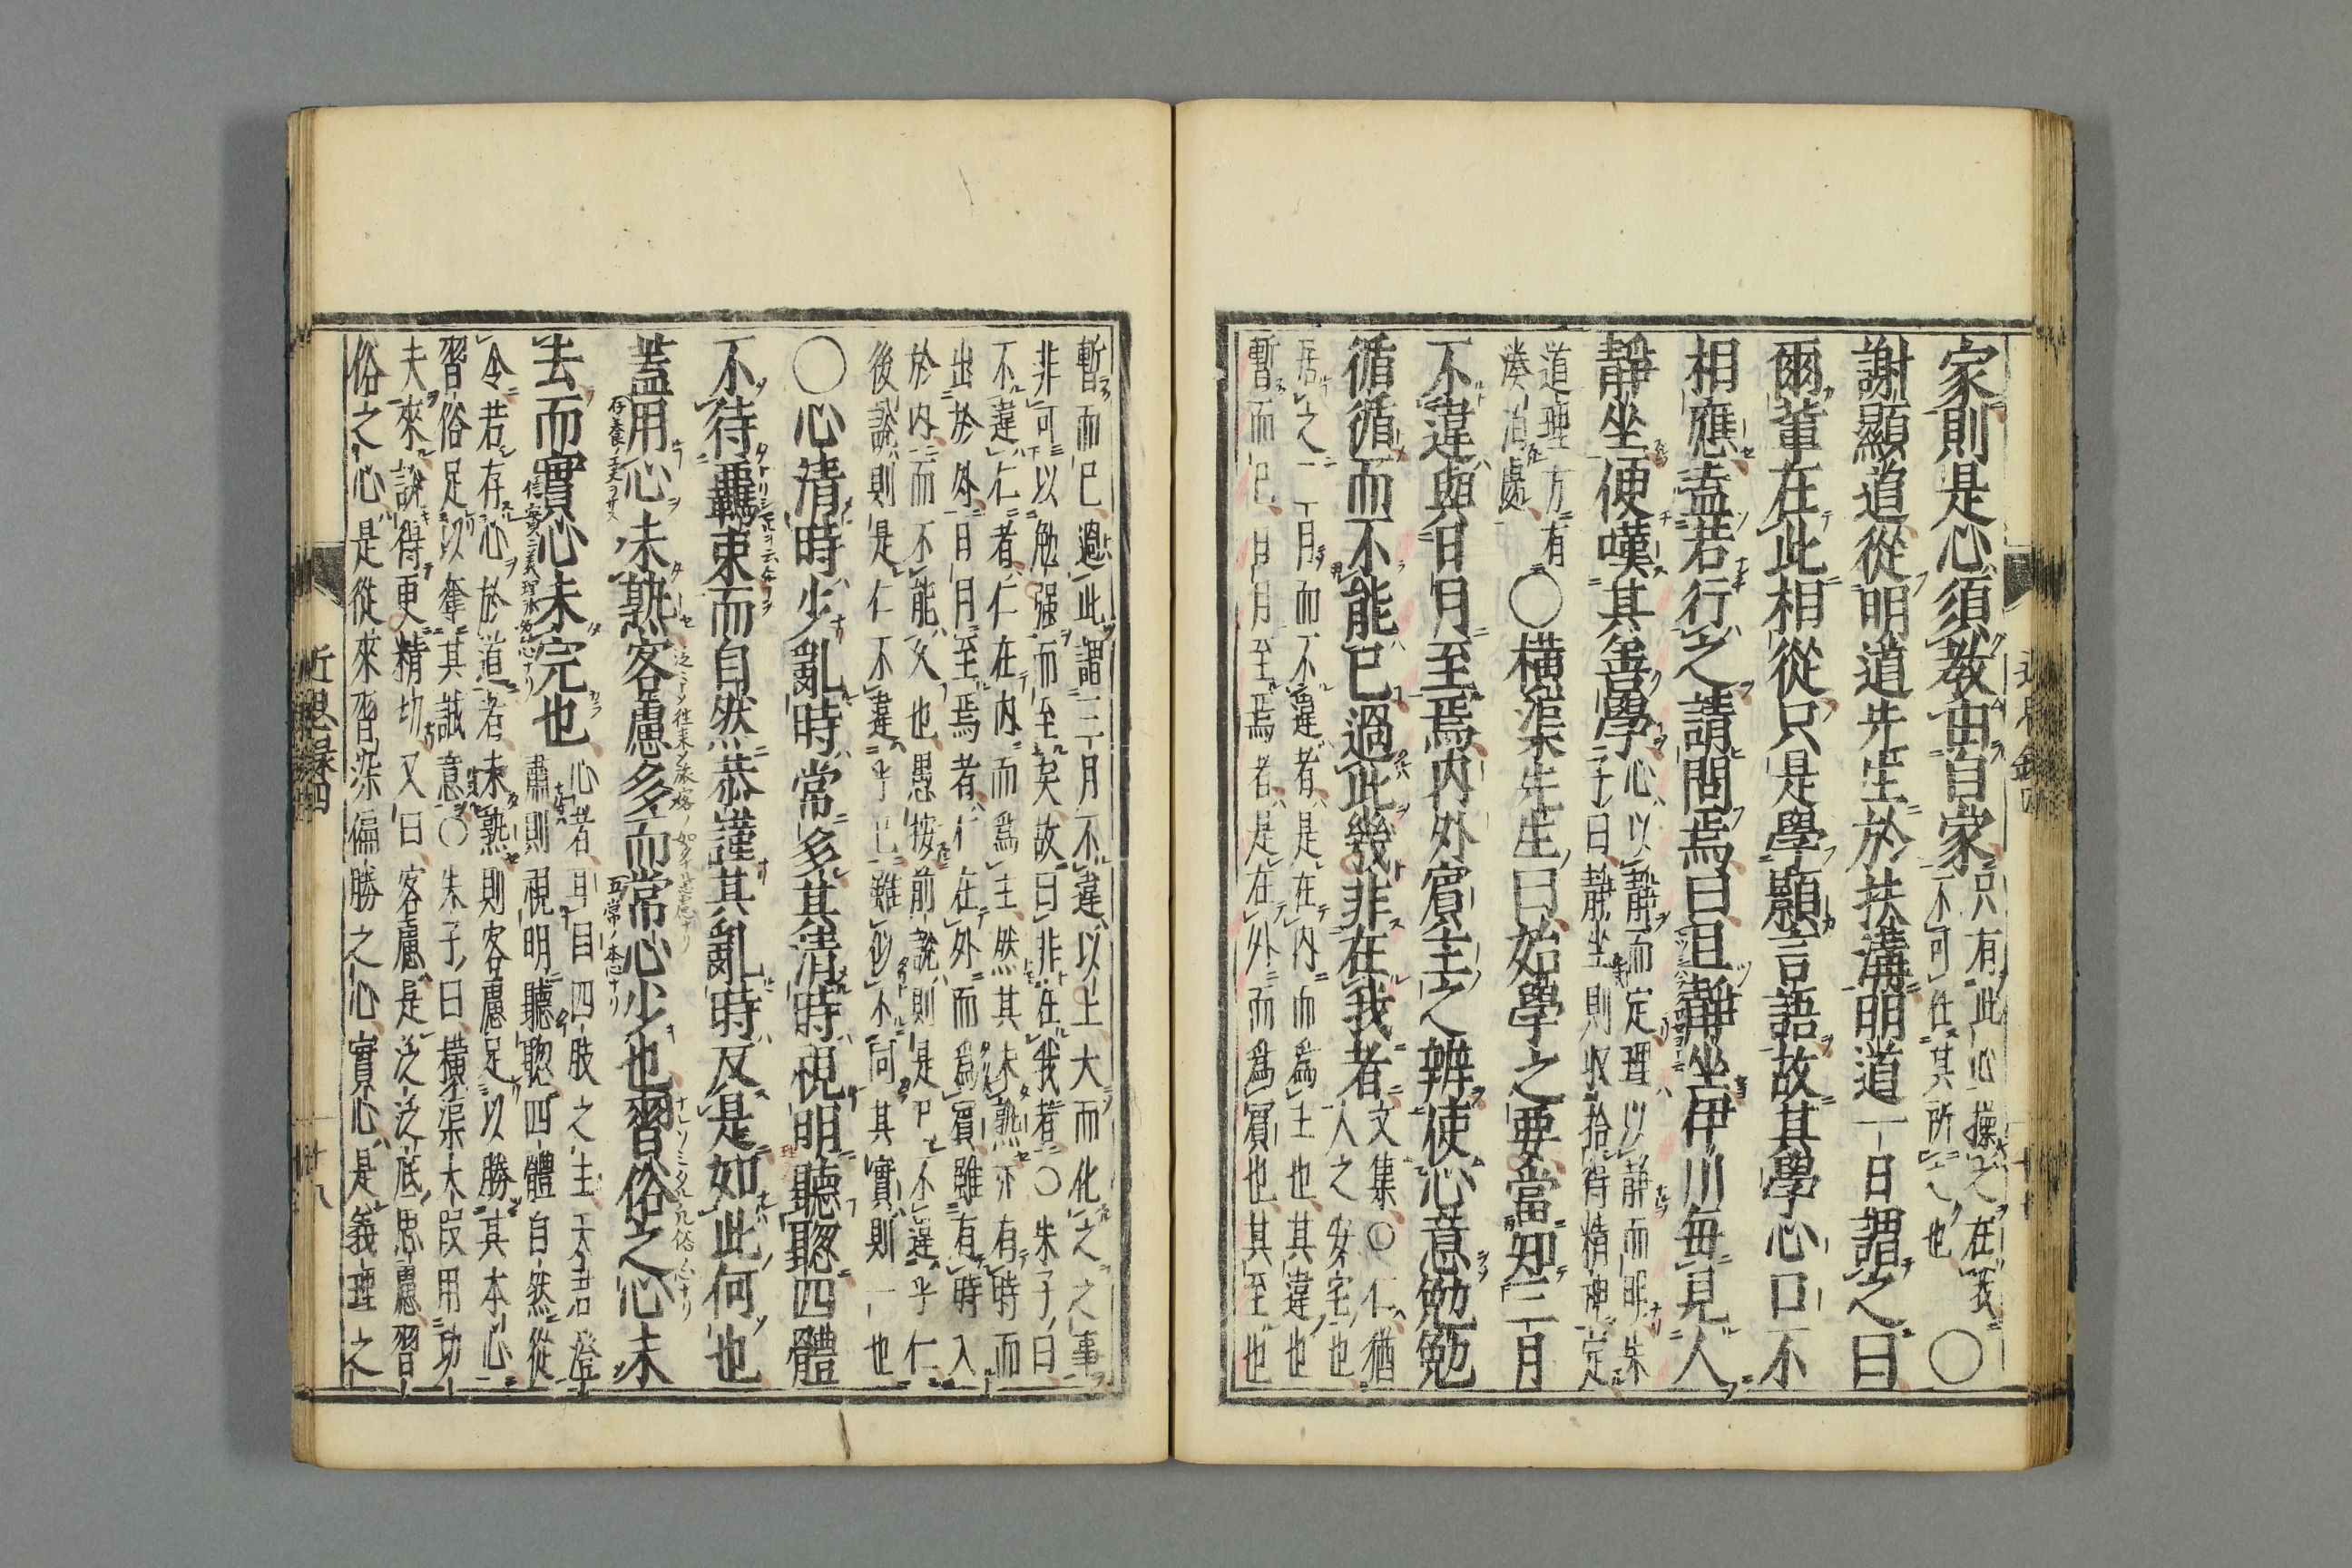 家則是心須教由自家只有此心操之在我不可任其所之也○
謝顯道從明道先生於扶溝明道一日謂之曰
爾輩在此相從只是學顥言語故其學心口不
相應盍若行之請問焉曰且靜坐伊川每見人
靜坐便嘆其善學心以靜而定理以靜而明朱子曰靜坐則收拾得精神定
道理方有湊泊處○橫渠先生曰始學之要當知三月
不違與日月至焉內外賓主之辨使心意勉勉
循循而不能已過此幾非在我者文集○仁猶人之安宅也
居之三月而不違者是在內而爲主也其違也
暫而已日月至焉者是在外而爲賓也其至也
近思錄四
暫而已過此謂三月不違以上大而化之之事
非可以勉强而至矣故曰非在我者○朱子曰
不違仁者仁在內而爲主然其未熟亦有時而
出於外日月至焉者仁在外而爲賓雖有時入
於內而不能久也愚按前說則是己不違乎仁
後說則是仁不違乎己雖似不同其實則一也
○心清時少亂時常多其清時視明聽聰四體
不待羈束而自然恭謹其亂時反是如此何也
蓋用心未熟客慮多而常心少也習俗之心未
去而實心未完也心者耳目四肢之主天君澄肅則視明聽聰四體自然從
令若存心於道者未熟則客慮足以勝其本心
習俗足以奪其誠意○朱子曰橫渠大段用功
夫來說得更精切又曰客慮是泛泛底思慮習
俗之心是從來習染偏勝之心實心是義理之
近思錄四
十八